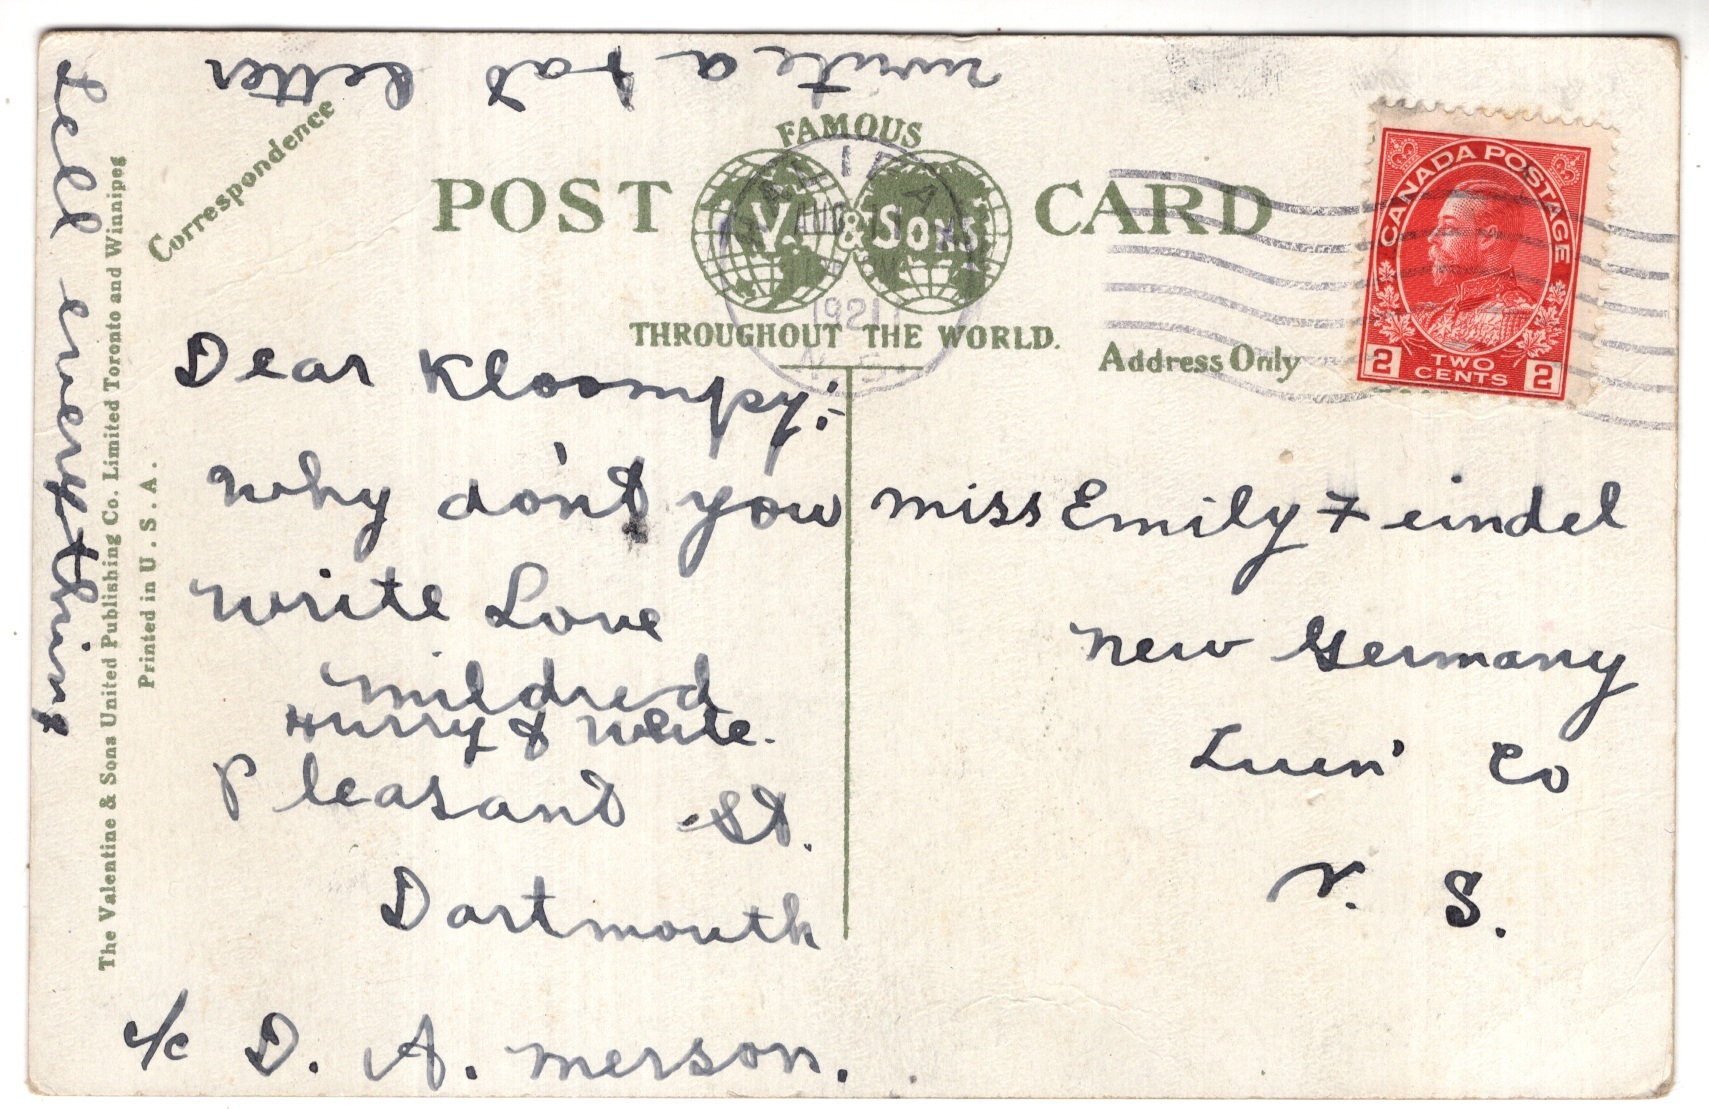 write a fat letter
Tell everything
Correspondence
The Valentine & Sons United Publishing Co. Limited Toronto and Winnipeg
Printed in U.S.A.
FAMOUS
POST CARD
V. & Sons
THROUGHOUT THE WORLD.
Address Only
HALIFAX
AUG
1921
N.S.
CANADA POSTAGE
2 TWO CENTS 2
Dear Kloompy:-
Why don't you
write Love
Mildred
Hurry & write.
Pleasant St.
Dartmouth
c/c D. A. Merson.
Miss Emily Feindel
New Germany
Luen' Co
N. S.